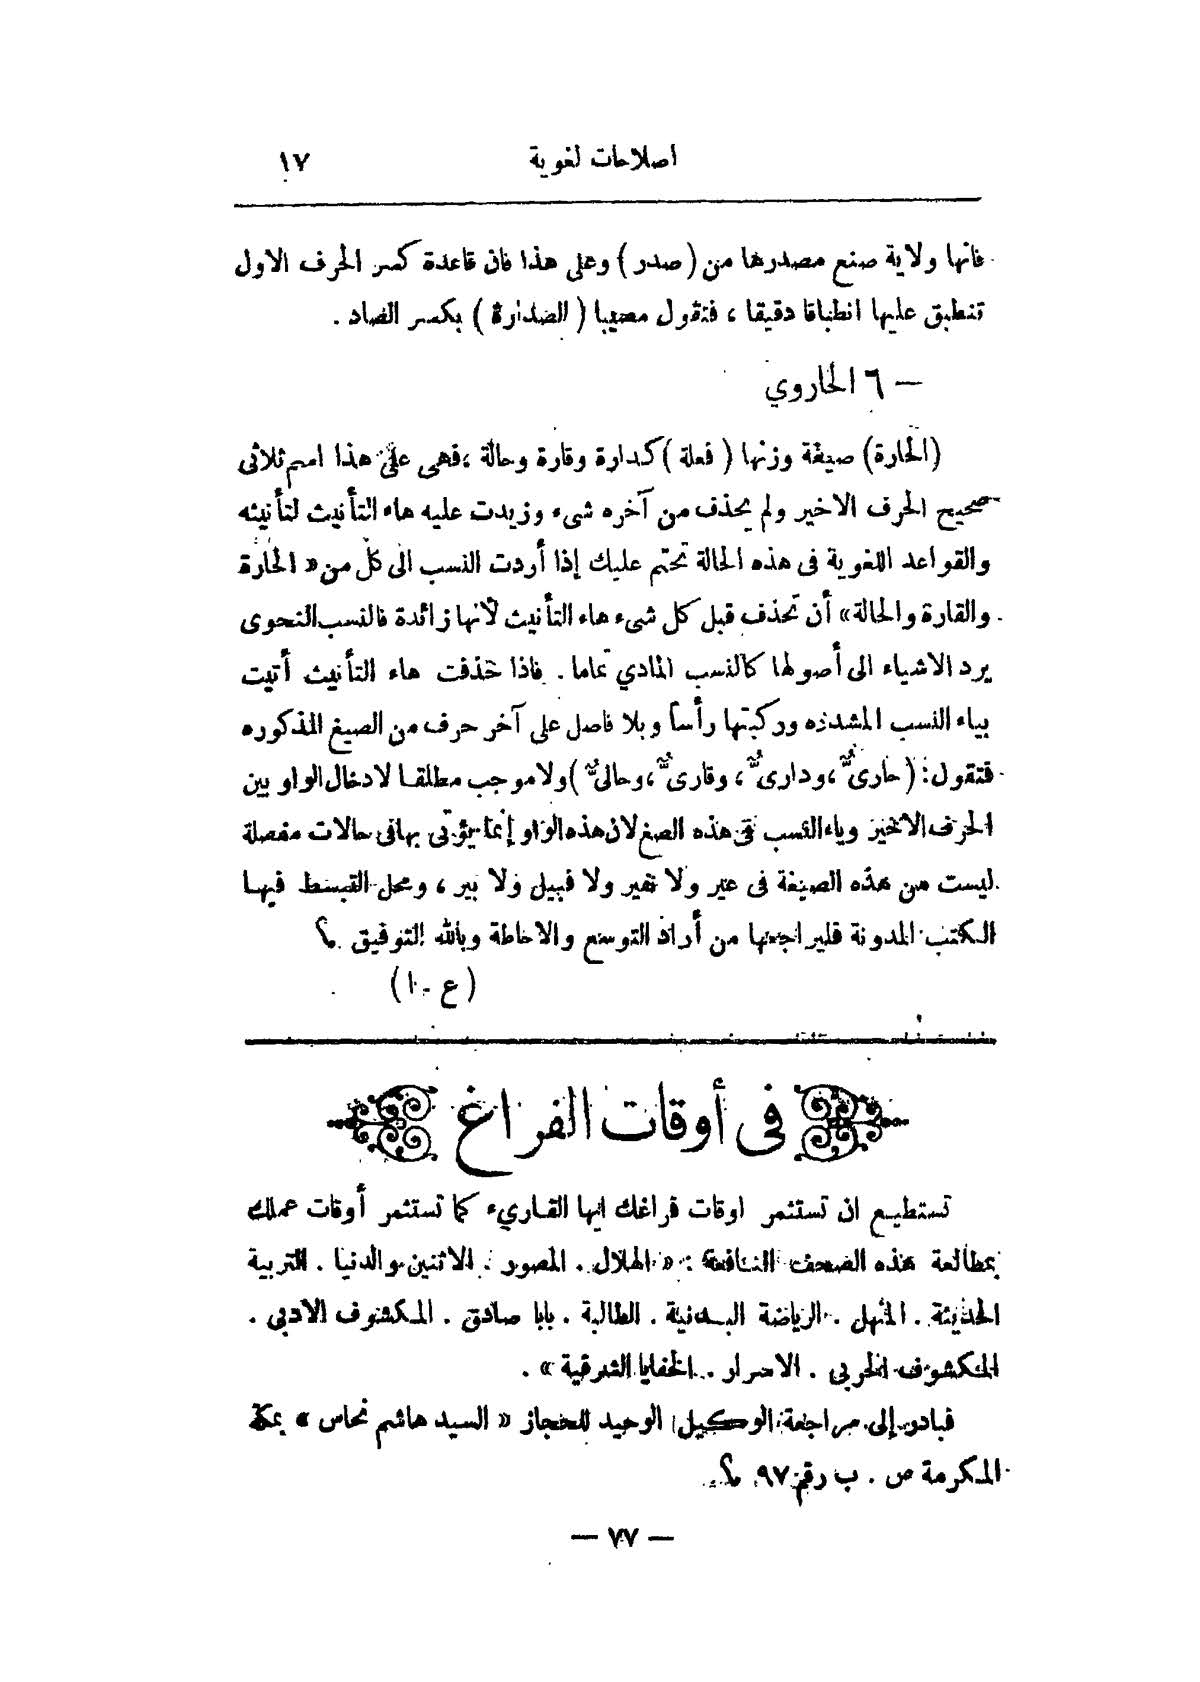 اصلاحات لغوية ١٧
فانها ولاية صنع مصدرها من (صدر) وعلى هذا فان قاعدة كسر الحرف الاول
تنطبق عليها انطباقا دقيقا ، فتقول مصيبا (الصدارة) بكسر الصاد .
— ٦ الحاروي
(الحارة) صيغة وزنها (فعلة) كدارة وقارة وحالة ، فهى على هذا اسم ثلاثى
صحيح الحرف الاخير ولم يحذف من آخره شىء وزيدت عليه هاء التأنيث لتأنيثه
والقواعد اللغوية فى هذه الحالة تحتم عليك إذا أردت النسب الى كل من « الحارة
والقارة والحالة» أن تحذف قبل كل شىء هاء التأنيث لأنها زائدة فالنسب النحوى
يرد الاشياء الى أصولها كالنسب المادي تماما . فاذا حذفت هاء التأنيث أتيت
بياء النسب المشدده وركبتها رأسا وبلا فاصل على آخر حرف من الصيغ المذكوره
فتقول: (حارىٌّ ، ودارىٌّ ، وقارىٌّ ، وحالىٌّ) ولاموجب مطلقا لادخال الواو بين
الحرف الاخير وياء النسب فى هذه الصيغ لان هذه الواو إنما يؤتى بها فى حالات مفصلة
ليست من هذه الصيغة فى عير ولا نفير ولا قبيل ولا بير ، ومحل التبسط فيها
الكتب المدونة فليراجعها من أراد التوسع والاحاطة وبالله التوفيق .
(ع ٠ ا)
فى أوقات الفراغ
تستطيع ان تستثمر اوقات فراغك ايها القاريء كما تستثمر أوقات عملك
بمطالعة هذه الصحف النافعة : « الهلال . المصور . الاثنين والدنيا . التربية
الحديثة . المنهل . الرياضة البدنية . الطالبة . بابا صادق . المكشوف الادبى .
المكشوف الحربي . الاحرار . الخفايا الشرقية » .
فبادر إلى مراجعة الوكيل الوحيد للحجاز « السيد هاشم نحاس » بمكة
المكرمة ص . ب رقم ٩٧
— ٧٧ —